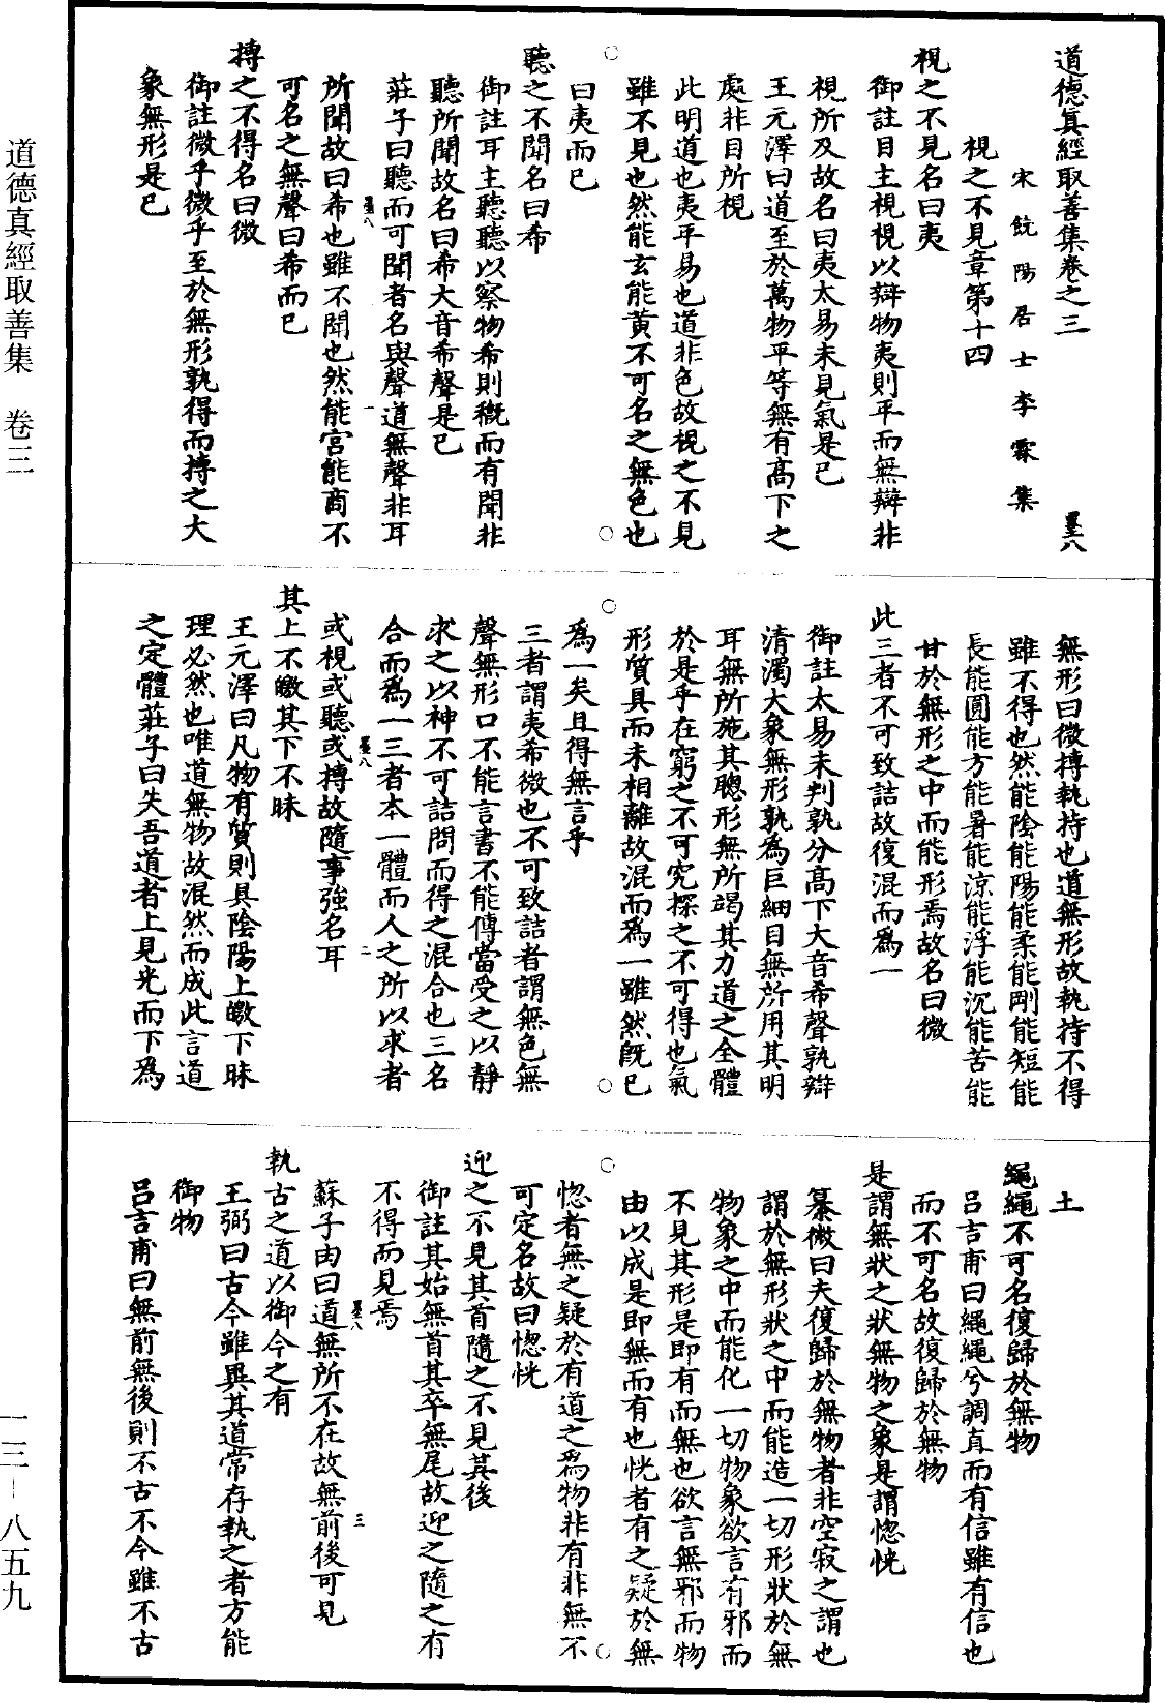 道德真經取善集卷之三 墨八
宋饒陽居士李霖集
視之不見章第十四
視之不見名曰夷
御註目主視視以辯物夷則平而無辯非
視所及故名曰夷太易未見氣是已
王元澤曰道至於萬物平等無有高下之
處非目所視
此明道也夷平易也道非色故視之不見
雖不見也然能玄能黃不可名之無色也
曰夷而已
聽之不聞名曰希
御註耳主聽聽以察物希則概而有聞非
聽所聞故名曰希大音希聲是已
莊子曰聽而可聞者名與聲道無聲非耳
墨八 一
所聞故曰希也雖不聞也然能宮能商不
可名之無聲曰希而已
搏之不得名曰微
御註微乎微乎至於無形孰得而搏之大
象無形是已
無形曰微搏執持也道無形故執持不得
雖不得也然能陰能陽能柔能剛能短能
長能圓能方能暑能涼能浮能沉能苦能
甘於無形之中而能形焉故名曰微
此三者不可致詰故復混而為一
御註太易未判孰分高下大音希聲孰辯
清濁大象無形孰為巨細目無所用其明
耳無所施其聰形無所竭其力道之全體
於是乎在窮之不可究探之不可得也氣
形質具而未相離故混而為一雖然既已
為一矣且得無言乎
三者謂夷希微也不可致詰者謂無色無
聲無形口不能言書不能傳當受之以靜
求之以神不可詰問而得之混合也三名
合而為一三者本一體而人之所以求者
墨八 二
或視或聽或搏故隨事強名耳
其上不皦其下不昧
王元澤曰凡物有質則具陰陽上皦下昧
理必然也唯道無物故混然而成此言道
之定體莊子曰失吾道者上見光而下為
土
繩繩不可名復歸於無物
呂吉甫曰繩繩兮調直而有信雖有信也
而不可名故復歸於無物
是謂無狀之狀無物之象是謂惚恍
纂微曰夫復歸於無物者非空寂之謂也
謂於無形狀之中而能造一切形狀於無
物象之中而能化一切物象欲言有邪而
不見其形是即有而無也欲言無邪而物
由以成是即無而有也恍者有之疑於無
惚者無之疑於有道之為物非有非無不
可定名故曰惚恍
迎之不見其首隨之不見其後
御註其始無首其卒無尾故迎之隨之有
不得而見焉
墨八 三
蘇子由曰道無所不在故無前後可見
執古之道以御今之有
王弼曰古今雖異其道常存執之者方能
御物
呂吉甫曰無前無後則不古不今雖不古
道德真經取善集 卷三
一三－八五九